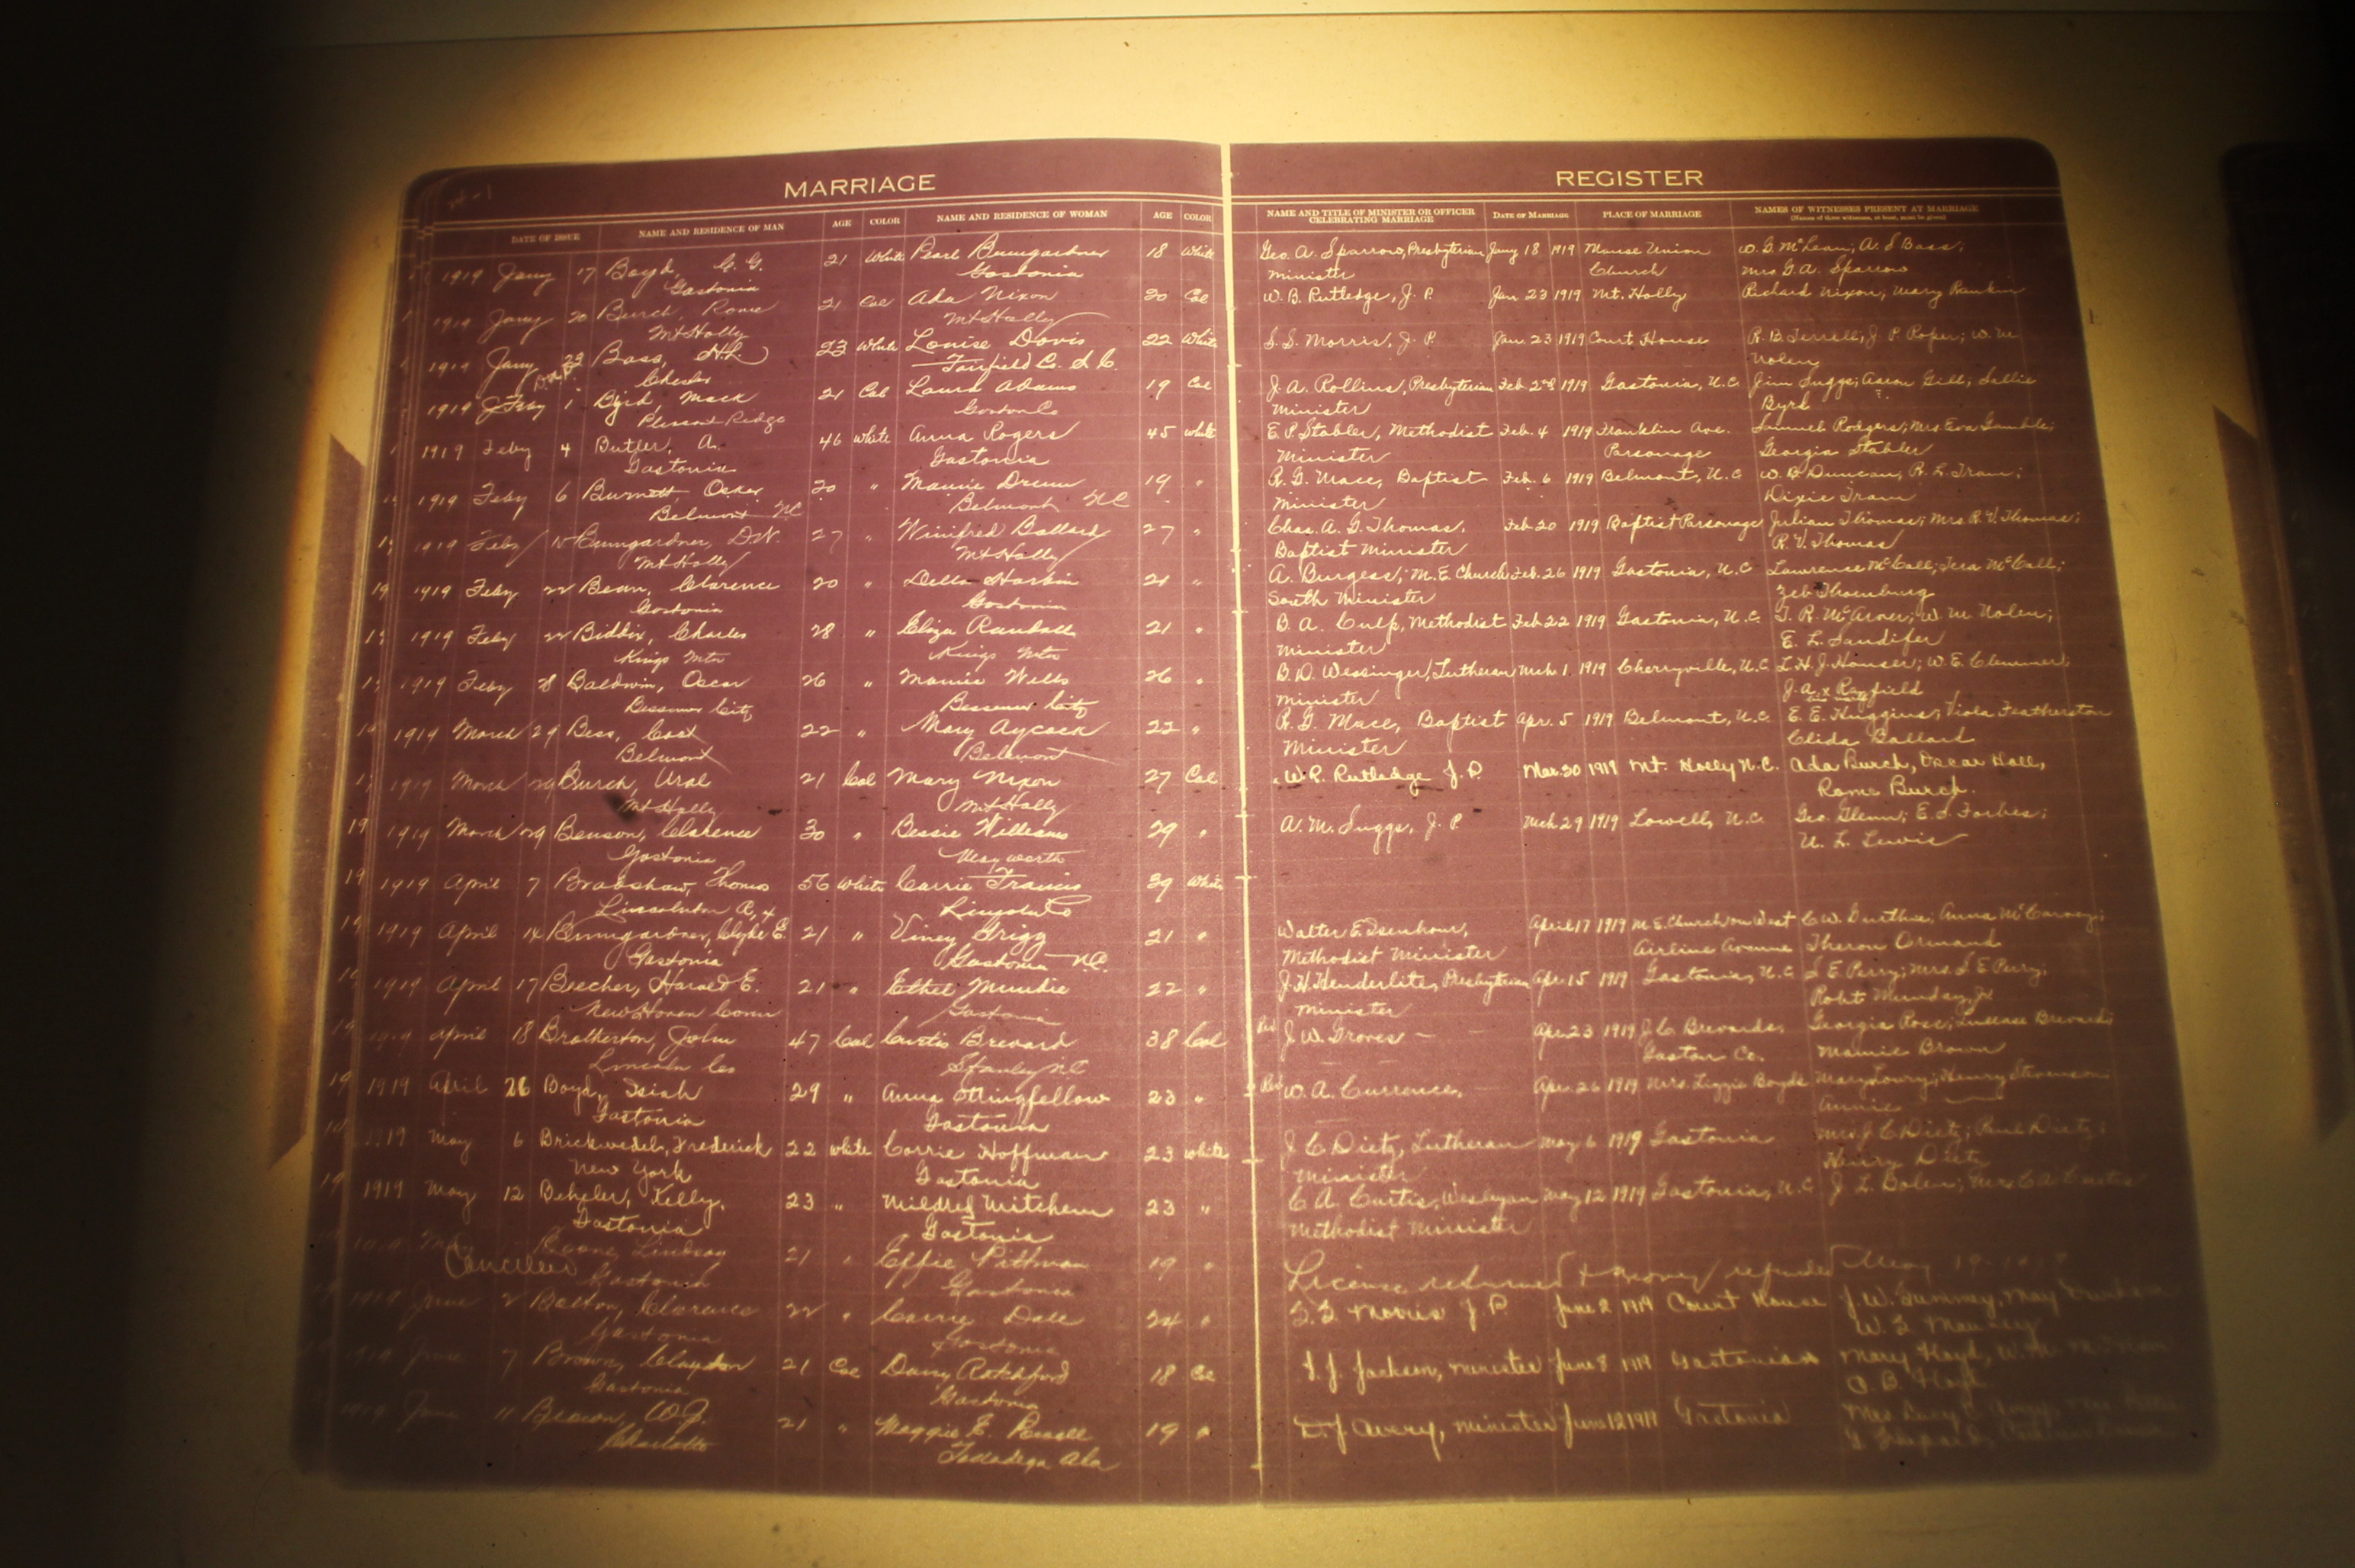 MARRIAGE REGISTER
DATE OF ISSUE NAME AND RESIDENCE OF MAN AGE COLOR NAME AND RESIDENCE OF WOMAN AGE COLOR NAME AND TITLE OF MINISTER OR OFFICER CELEBRATING MARRIAGE DATE OF MARRIAGE PLACE OF MARRIAGE NAMES OF WITNESSES PRESENT AT MARRIAGE
(Names of three witnesses, at least, must be given)
1919 Jany 17 Boyd, G. G. 21 White Pearl Bumgardner 18 White Geo. A. Sparrow, Presbyterian Jany 18 1919 Manse Union W. G. McLean; A. S Bass;
Gastonia Gastonia Minister Church Mrs G. A. Sparrow
1919 Jany 20 Burch, Rome 21 Col Ada Nixon 20 Col W. B. Rutledge, J. P. Jan 23 1919 Mt. Holly Richard Nixon, Mary Rankin
Mt Holly Mt Holly
1919 Jany 23 Bass, 23 White Louise Davis 22 White S. S. Morris, J. P. Jan 23 1919 Court House R. B. Terrell; J. P. Roper; W. M.
Chester Fairfield Co. S. C. Nolen
1919 Feby 1 Byrd Mack 21 Col Laura Adams 19 Col J. A. Rollins, Presbyterian Feb 2nd 1919 Gastonia, N.C. Jim Suggs; Aaron Gill; Sallie
Pleasant Ridge Gaston Co Minister Byrd
1919 Feby 4 Butler, A. 46 White Anna Rogers 45 White E. P. Stabler, Methodist Feb. 4 1919 Franklin Ave. Samuel Rodgers; Mrs. Eva Gamble;
Gastonia Gastonia Minister Parsonage Georgia Stabler
1919 Feby 6 Burnett Oscar 20 " Mamie Drum 19 " R. G. Mace, Baptist Feb. 6 1919 Belmont, N.C W. B Duncan; R. L. Tram;
Belmont NC Belmont NC Minister Dixie Tram
1919 Feby 15 Bumgardner, D.W. 27 " Winifred Ballard 27 " Chas. A. G. Thomas, Feb 20 1919 Baptist Parsonage Julian Thomas; Mrs R. V. Thomas;
Mt Holly Mt Holly Baptist Minister R. V. Thomas
1919 Feby 22 Bean, Clarence 20 " Della 21 " A. Burgess; M. E. Church Feb. 26 1919 Gastonia, N.C Lawrence McCall; McCall;
Gastonia Gastonia South Minister Zeb Thornburg
1919 Feby 22 Biddix, Charles 28 " Eliza Randall 21 " B. A. Culp, Methodist Feb 22 1919 Gastonia, N.C. W. M Nolen;
Kings Mtn Kings Mtn Minister E. L. Sandifer
1919 Feby 28 Baldwin, Oscar 26 " Mamie Wells 26 " B. D. Wessinger, Lutheran Mch 1. 1919 Cherryville, N.C L. H. J. Houser; W. E. Clemmer;
Bessemer City Bessemer City Minister J. A. x Rayfield
1919 March 29 Bess, 22 " Mary Aycock 22 " R. G. Mace, Baptist Apr. 5 1919 Belmont, N.C. E. E. Huggins; Viola Featherston
Belmont Belmont Minister Clida Ballard
1919 March 29 Burch, Ural 21 Col Mary Nixon 27 Col. W. B. Rutledge J. P. Mar. 30 1919 Mt. Holly N.C. Ada Burch, Oscar Hall,
Mt Holly Mt Holly Rome Burch.
1919 March 29 Benson, Clarence 30 " Bessie Williams 29 " A. M. Suggs, J. P. Mch 29 1919 Lowell, N.C. Geo. Glenn; E. S. Forbes;
Gastonia Mayworth N. L. Lewis
1919 April 7 Bradshaw, Thomas 56 White Carrie Francis 39 White
Lincolnton R, 4 Lincoln Co
1919 April 14 Bumgardner, Clyde E. 21 " Viney Grigg 21 " Walter E. Isenhour, April 17 1919 M. E. Church on West C. W. Anna
Gastonia Gastonia N.C. Methodist Minister Airline Avenue Theron Ormand
1919 April 17 Beecher, Harold E. 21 " Ethel 22 " J. H. Henderlite, Presbyterian Apr 15 1919 Gastonia, N.C S. E. Perry; Mrs. S. E Perry;
New Haven Conn Gastonia Minister Robt
1919 April 18 Brotherton, John 47 Col Curtis Brevard 38 Col Rev J. W. Groves Apr. 23 1919 J. C. Brevards, Georgia Rose; Brevard;
Lincoln Co Stanley NC Gaston Co. Mamie Brown
1919 April 26 Boyd, Isiah 29 " Anna Stringfellow 23 " Rev W. A. Currence, Apr. 26 1919 Mrs. Lizzie Boyds Mary Lowry; Henry Stevenson
Gastonia Gastonia Annie
1919 May 6 Brickwedel, Frederick 22 White Corrie Hoffman 23 White J. C Dietz, Lutheran May 6 1919 Gastonia Mrs J C Dietz; Paul Dietz;
New York Gastonia Minister Henry Dietz
1919 May 12 Beheler, Kelly, 23 " Mildred Mitchem 23 " C. A. Curtis, Wesleyan May 12 1919 Gastonia, N.C J. L. Bolen; Mrs. C A. Curtis
Gastonia Gastonia Methodist Minister
Boone, Lindsay 21 " Effie Pittman 19 " License returned & money refunded May 19
Cancelled Gastonia Gastonia
1919 June 2 Bolton, Clarence 22 " Carrie Dale 24 " S. S. Morris J. P. June 2 1919 Court House J. W. Gummey, May
Gastonia Gastonia W. S.
1919 June 7 Brown, Clayton 21 Col Daisy Ratchford 18 Col Jackson, Minister June 8 1919 Gastonia Mary Hoyl,
Gastonia Gastonia O. B. Hoyl
1919 June 11 Brown, W. J. 21 " Maggie E. 19 " D. J Avery, Minister June 12 1919 Gastonia Mrs.
Charlotte Ala